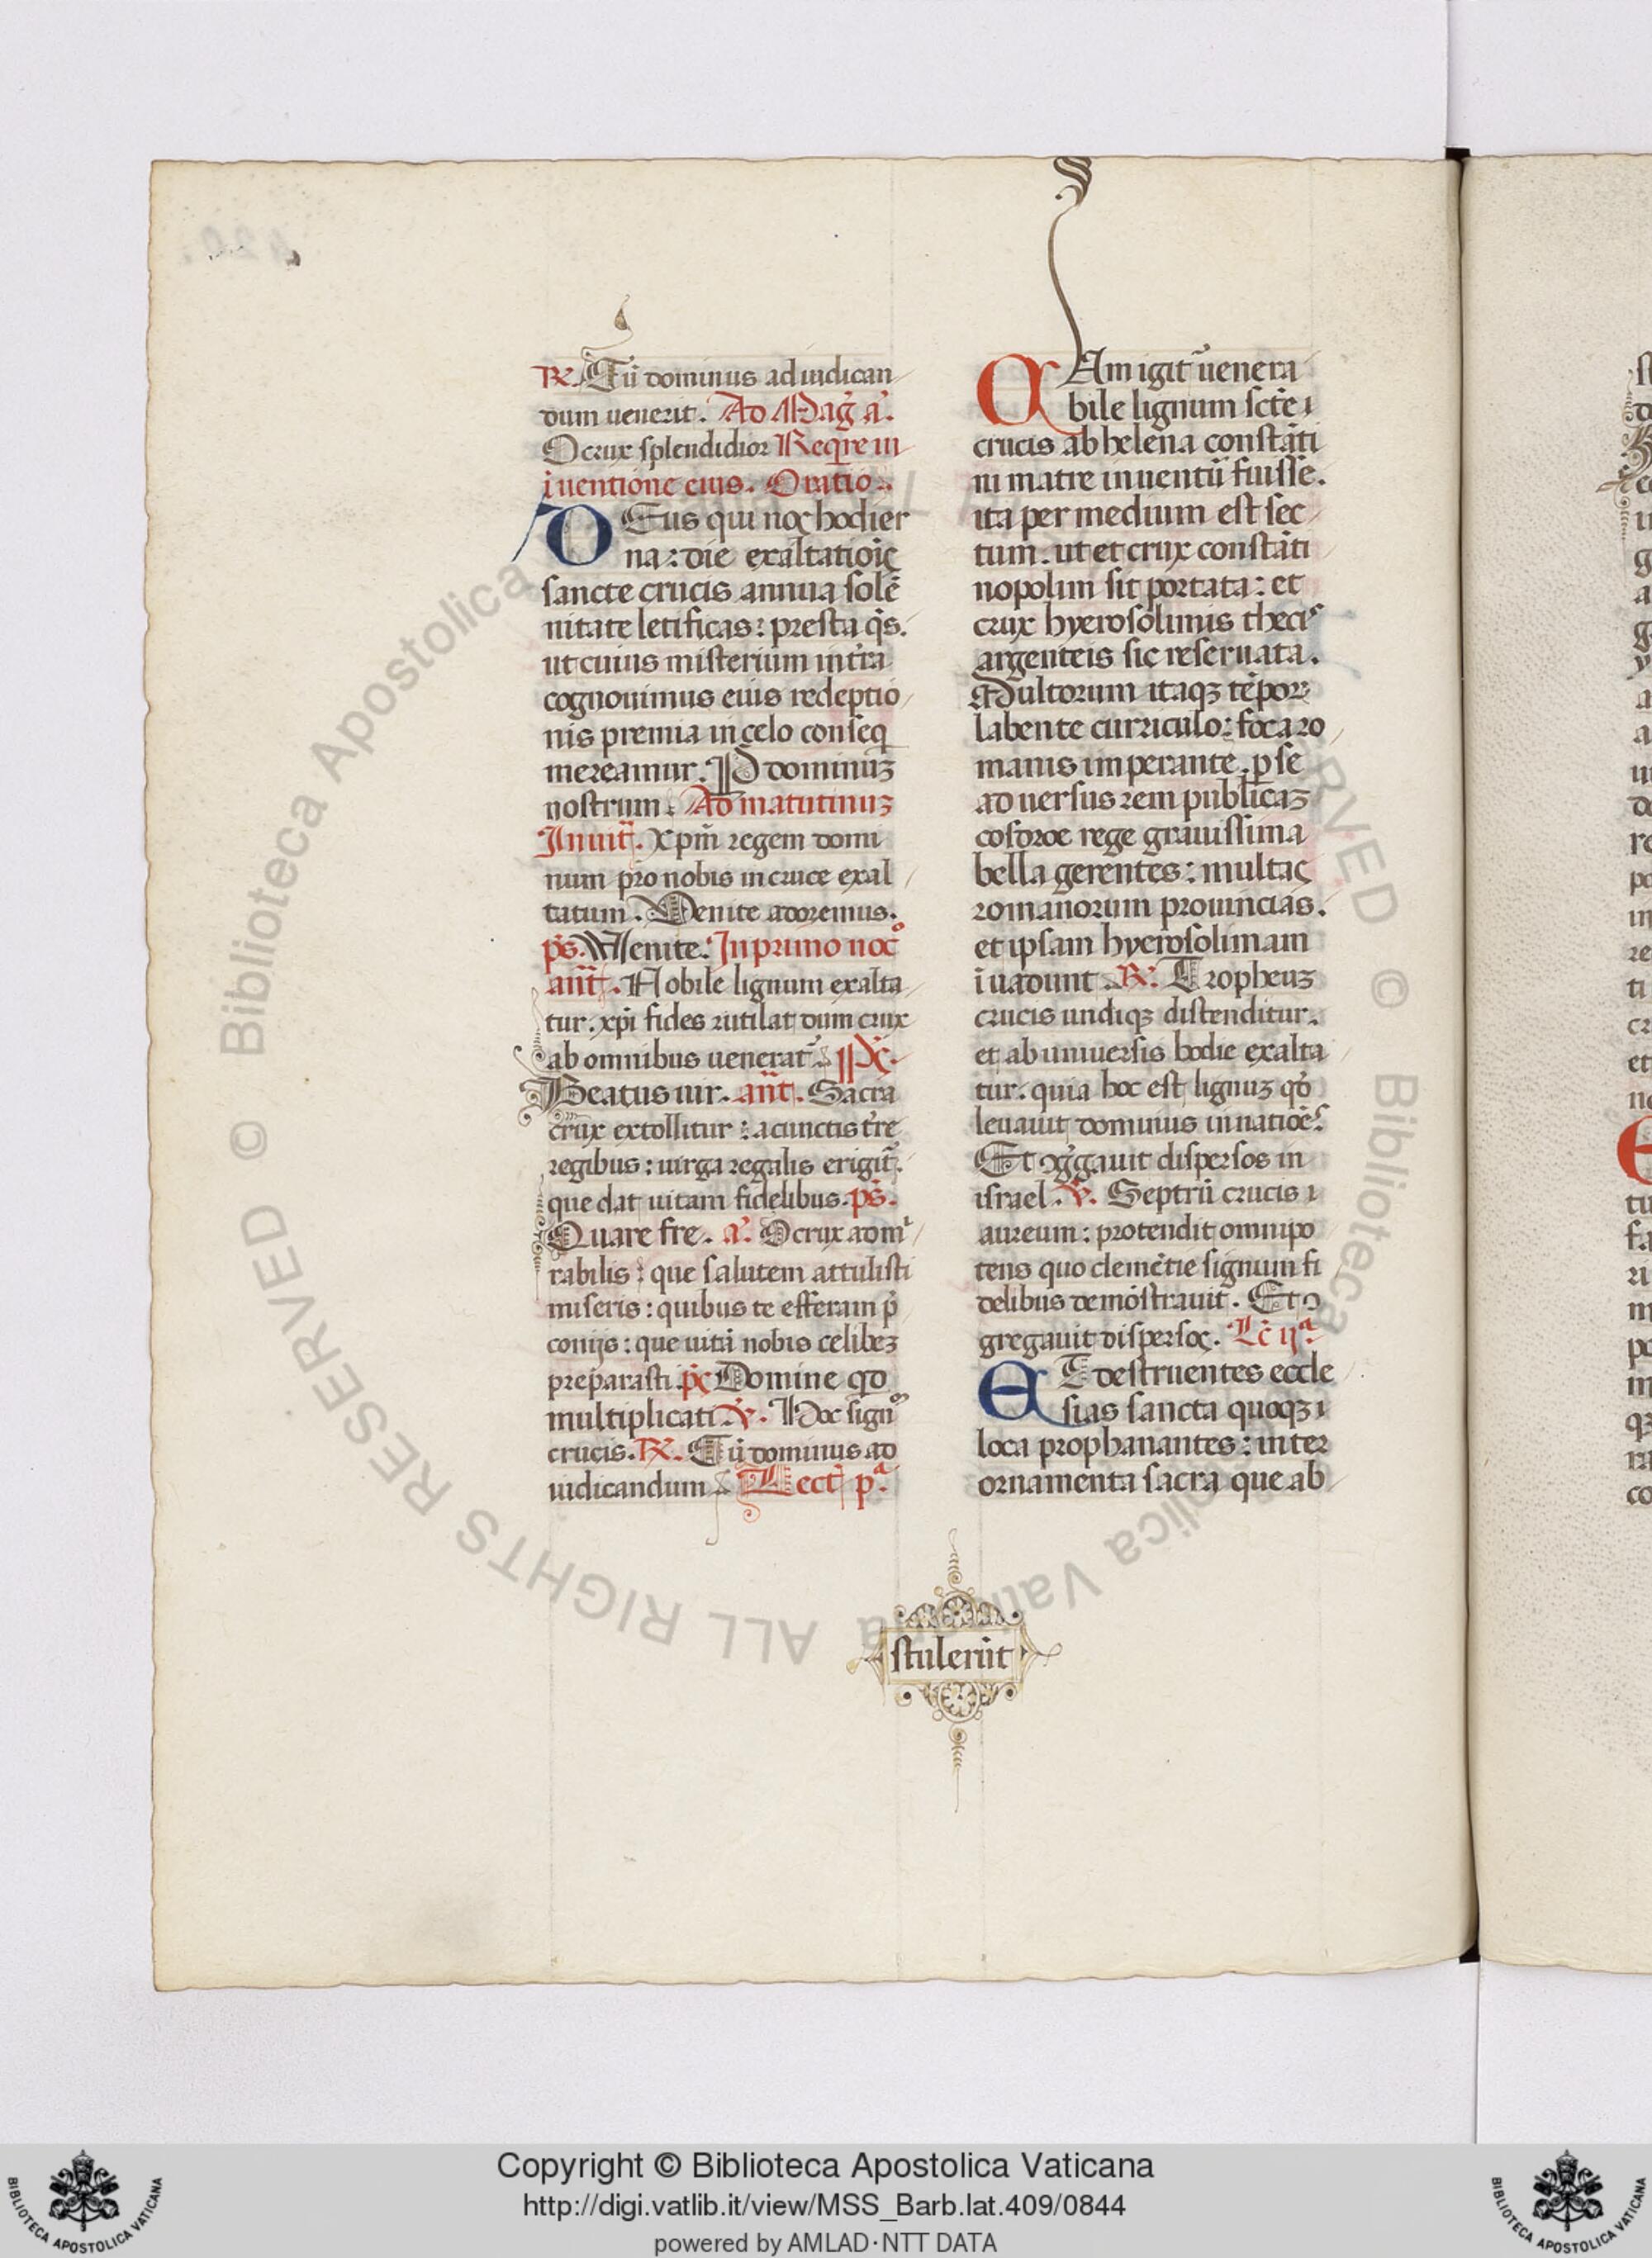 ℞. Cū dominus ad iudican
dum uenerit. Ad Mag̃ a᷉.
O crux splendidior Require in
īuentione eius. Oratio.
DEus qui nos hodier
na: die exaltatiōis
sancte crucis annua solē
nitate letificas: presta q̄s.
ut cuius misterium in tr̄ra
cognouimus eius redēptio
nis premia in celo conseq
mereamur. P dominuꝫ
nostrum. Ad matutinuꝫ
Inuit̄. Xp̄m regem domi
num pro nobis in cruce exal
tatum. Venite adoremus.
p̄s. Venite. In primo noc̊
ant̄. Nobile lignum exalta
tur. xp̄i fides rutilat dum crux
ab omnibus uenerat᷉. Ps̄.
Beatus uir. ant̄. Sacra
crux extollitur: a cunctis tr̄re
regibus: uirga regalis erigit᷉.
que dat uitam fidelibus. ps̄.
Quare fre. a᷉. O crux admⁱ
rabilis: que salutem attulisti
miseris: quibus te efferam p̄
conijs: que uitā nobis celibeꝫ
preparasti. ps̄ Domine qd
multiplicati. ℣. Hoc signū
crucis. ℞. Cū dominus ad
iudicandum. Lect̄ pᵃ.
QAm igit᷉ uenera
bile lignum scte
crucis ab helena constāti
ni matre inuentū fuisse.
ita per medium est sec
tum. ut et crux constāti
nopolim sit portata: et
crux hyerosolimis thecis
argenteis sic reseruata.
Multorum itaqꝫ tēpoꝝ
labente curriculo: foca ro
manis imperante. p̱se
aduersus rem publicaꝫ
cosdroe rege grauissima
bella gerentes: multas
romanorum prouincias.
et ipsam hyerosolimam
īuadunt. ℞. Tropheuꝫ
crucis undiqꝫ distenditur.
et ab uniuersis hodie exalta
tur. quia hoc est lignuꝫ qd̄
leuauit dominus in natiōēs
Et ꝯg̃gauit dispersos in
israel. ℣. Septrū crucis
aureum: protendit omnipo
tens quo clemētie signum fi
delibus demōstrauit. Et ꝯ
gregauit dispersos. Lc̄ ijᵃ.
ET destruentes eccle
sias sancta quoqꝫ
loca prophanantes: inter
ornamenta sacra que ab
stulerūt
Copyright © Biblioteca Apostolica Vaticana
http://digi.vatlib.it/view/MSS_Barb.lat.409/0844
powered by AMLAD·NTT DATA
BIBLIOTECA APOSTOLICA VATICANA
BIBLIOTECA APOSTOLICA VATICANA
© Biblioteca Apostolica Vaticana ALL RIGHTS RESERVED